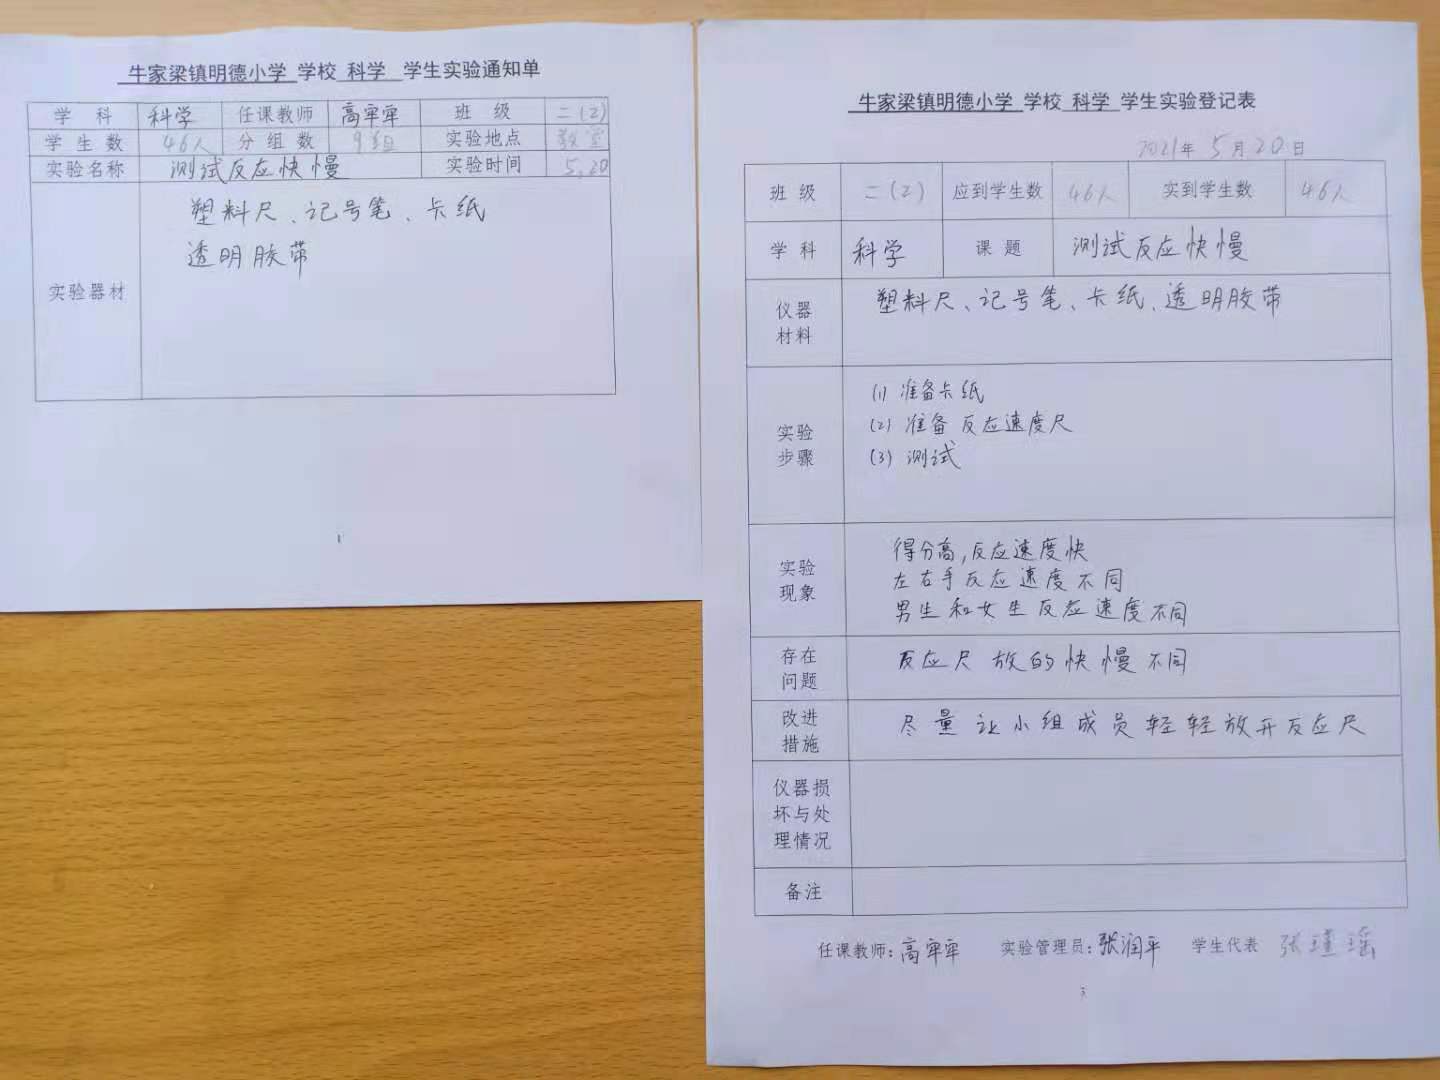 牛家梁镇明德小学 学校 科学 学生实验通知单
学 科 科学 任课教师 高牢牢 班 级 二(2)
学 生 数 46人 分 组 数 9组 实验地点 教室
实验名称 测试反应快慢 实验时间 5.20
塑料尺、记号笔、卡纸
透明胶带
实验器材
1
牛家梁镇明德小学 学校 科学 学生实验登记表
2021年 5月 20日
班 级 二(2) 应到学生数 46人 实到学生数 46人
学 科 科学 课 题 测试反应快慢
仪器
材料
塑料尺、记号笔、卡纸、透明胶带
实验
步骤
(1) 准备卡纸
(2) 准备反应速度尺
(3) 测试
实验
现象
得分高,反应速度快
左右手反应速度不同
男生和女生反应速度不同
存在
问题
反应尺放的快慢不同
改进
措施
尽量让小组成员轻轻放开反应尺
仪器损
坏与处
理情况
备注
任课教师:高牢牢 实验管理员:张润平 学生代表 张瑾瑶